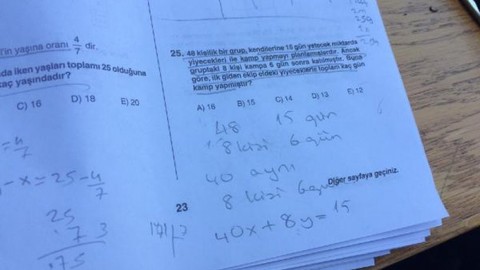 yaşına oranı 4/7 dir.
iken yaşları toplamı 25 olduğuna
kaç yaşındadır?
C) 16 D) 18 E) 20
- x = 25 - 4/7
25
73
175
25. 48 kişilik bir grup, kendilerine 15 gün yetecek miktarda
yiyecekleri ile kamp yapmayı planlamışlardır. Ancak
gruptaki 8 kişi kampa 6 gün sonra katılmıştır. Buna
göre, ilk giden ekip eldeki yiyeceklerle toplam kaç gün
kamp yapmıştır?
A) 16 B) 15 C) 14 D) 13 E) 12
48 15 gün
8 kişi 6 gün
40 aynı
8 kişi
40x + 8y = 15
23
Diğer sayfaya geçiniz.